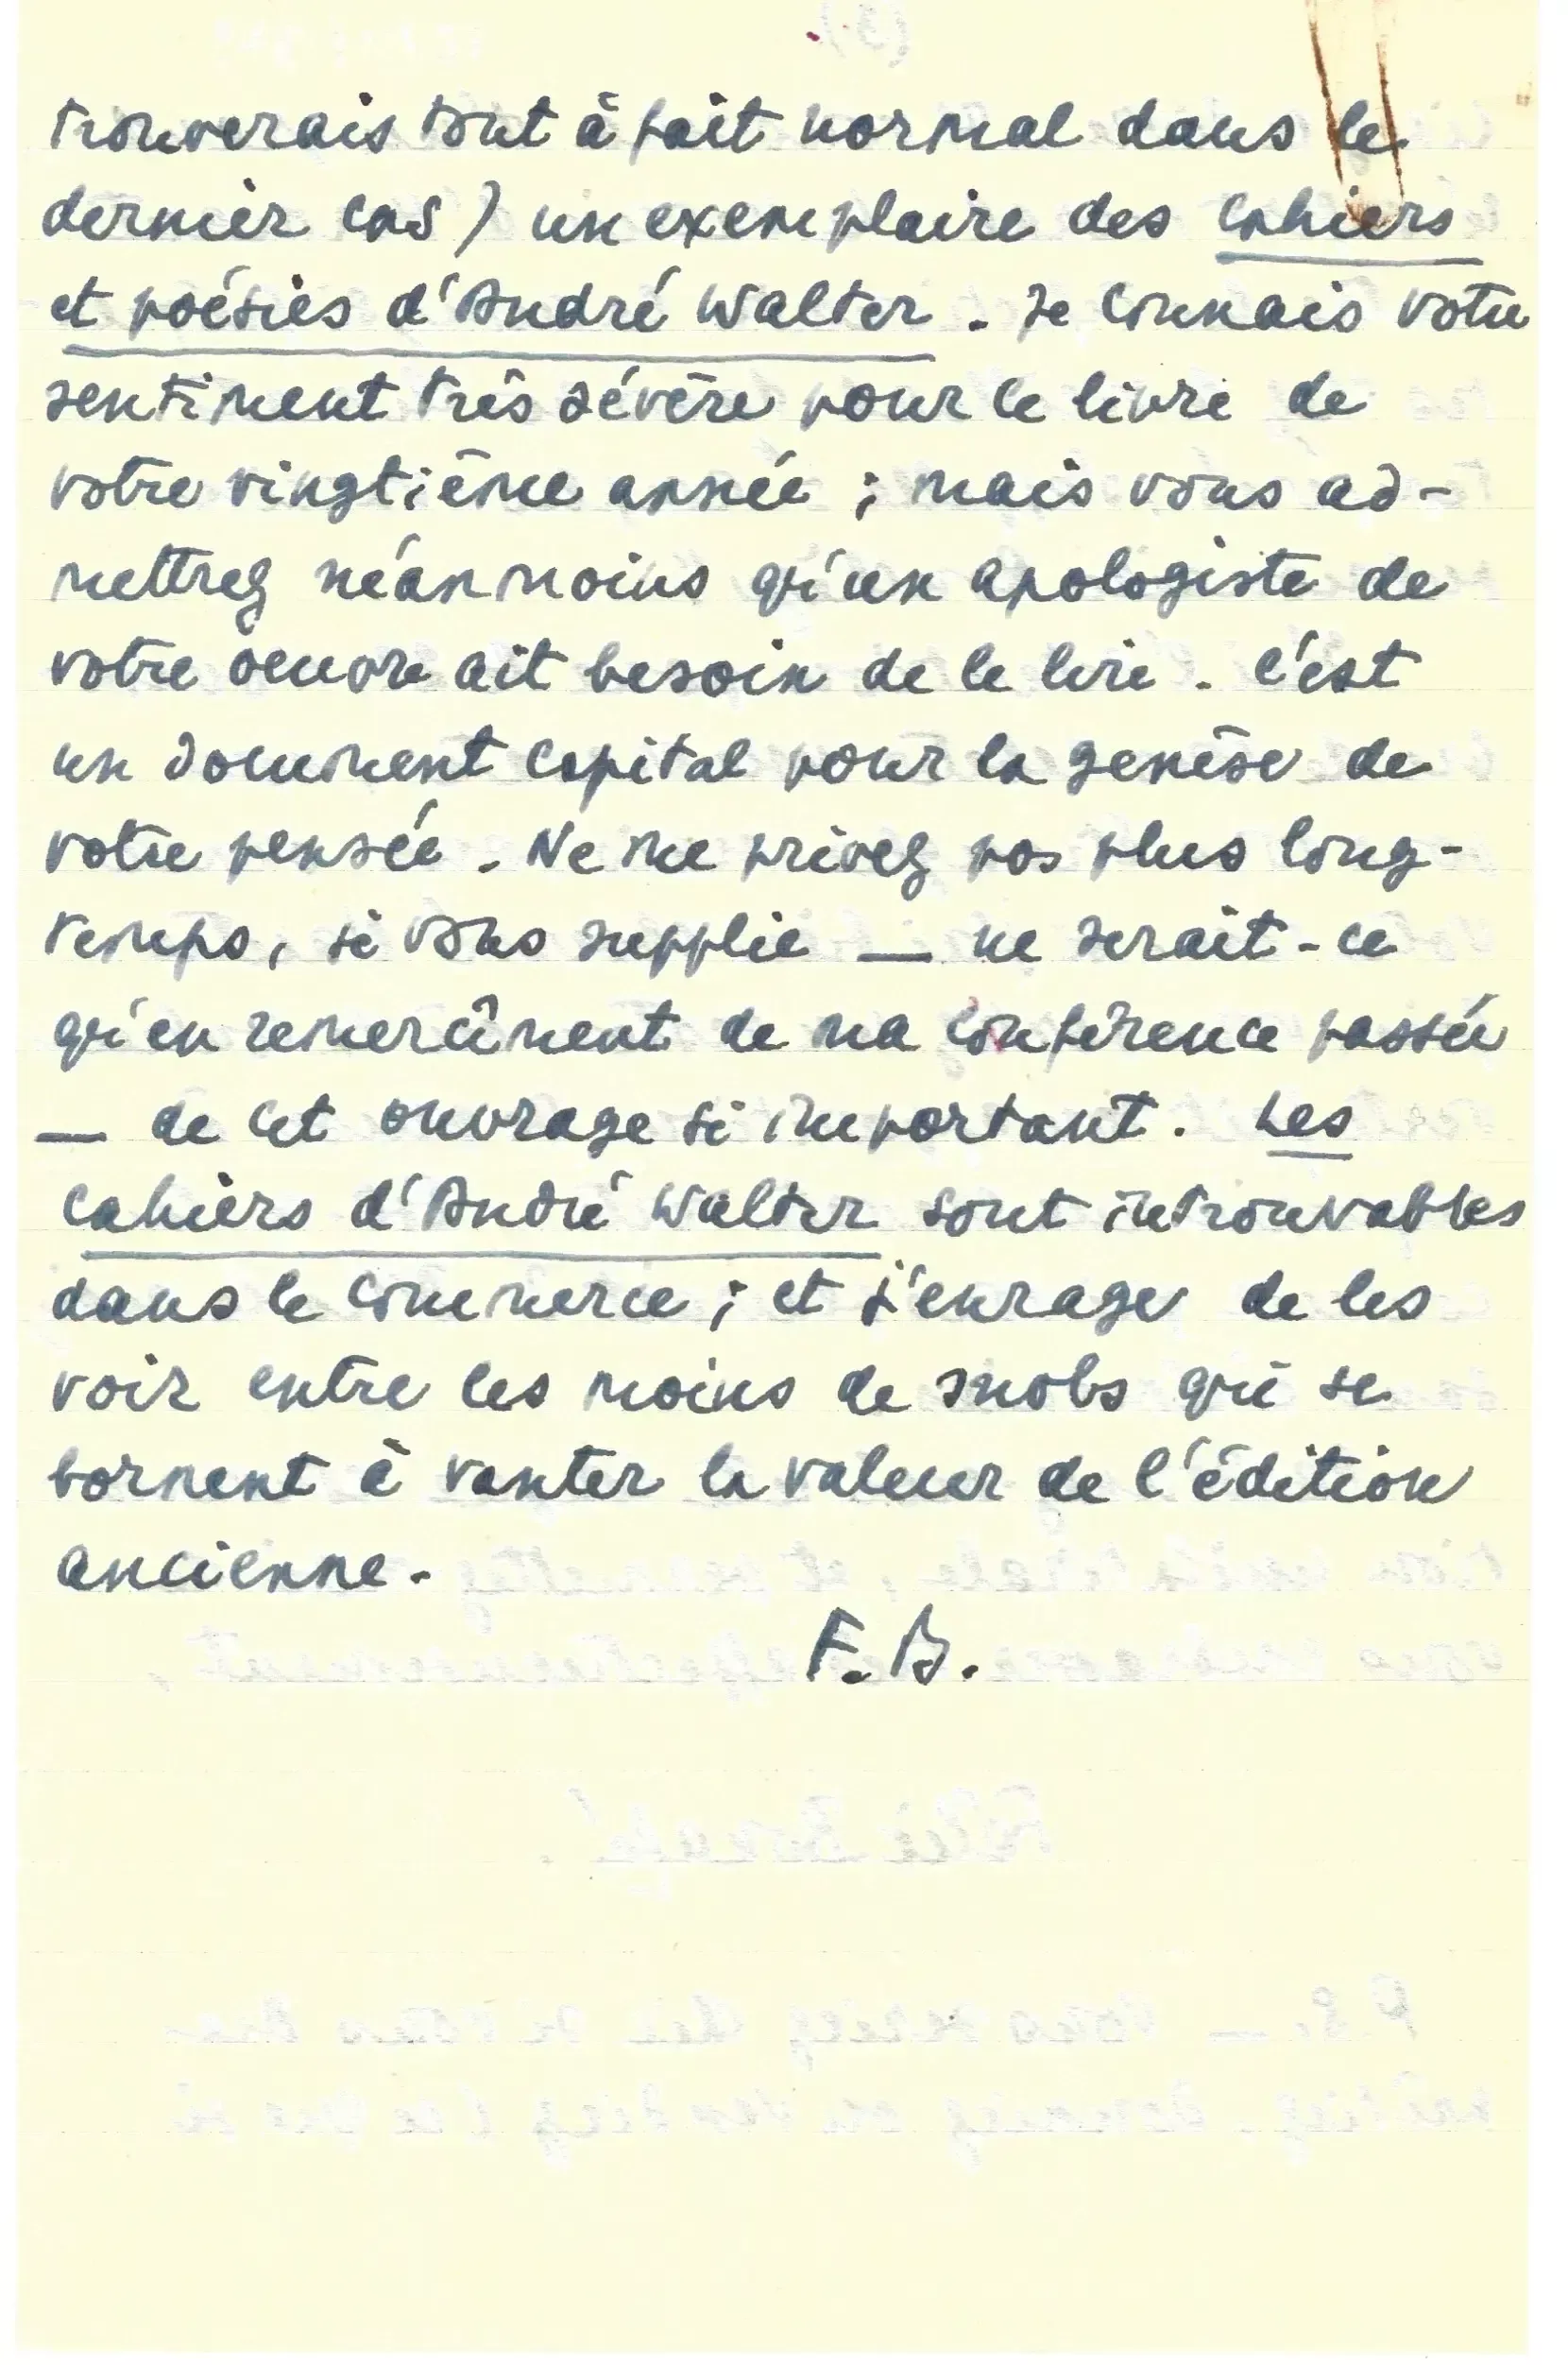 trouverais tout à fait normal dans le
dernier cas) un exemplaire des Cahiers
et poésies d'André Walter. Je connais votre
sentiment très sévère pour le livre de
votre vingtième année ; mais vous ad-
mettrez néanmoins qu'un apologiste de
votre oeuvre ait besoin de le lire. C'est
un document capital pour la genèse de
votre pensée. Ne me privez pas plus long-
temps, je vous supplie — ne serait-ce
qu'en remercîment de ma conférence passée
— de cet ouvrage si important. Les
Cahiers d'André Walter sont introuvables
dans le commerce ; et j'enrage de les
voir entre les mains de snobs qui se
bornent à vanter la valeur de l'édition
ancienne.
F. B.